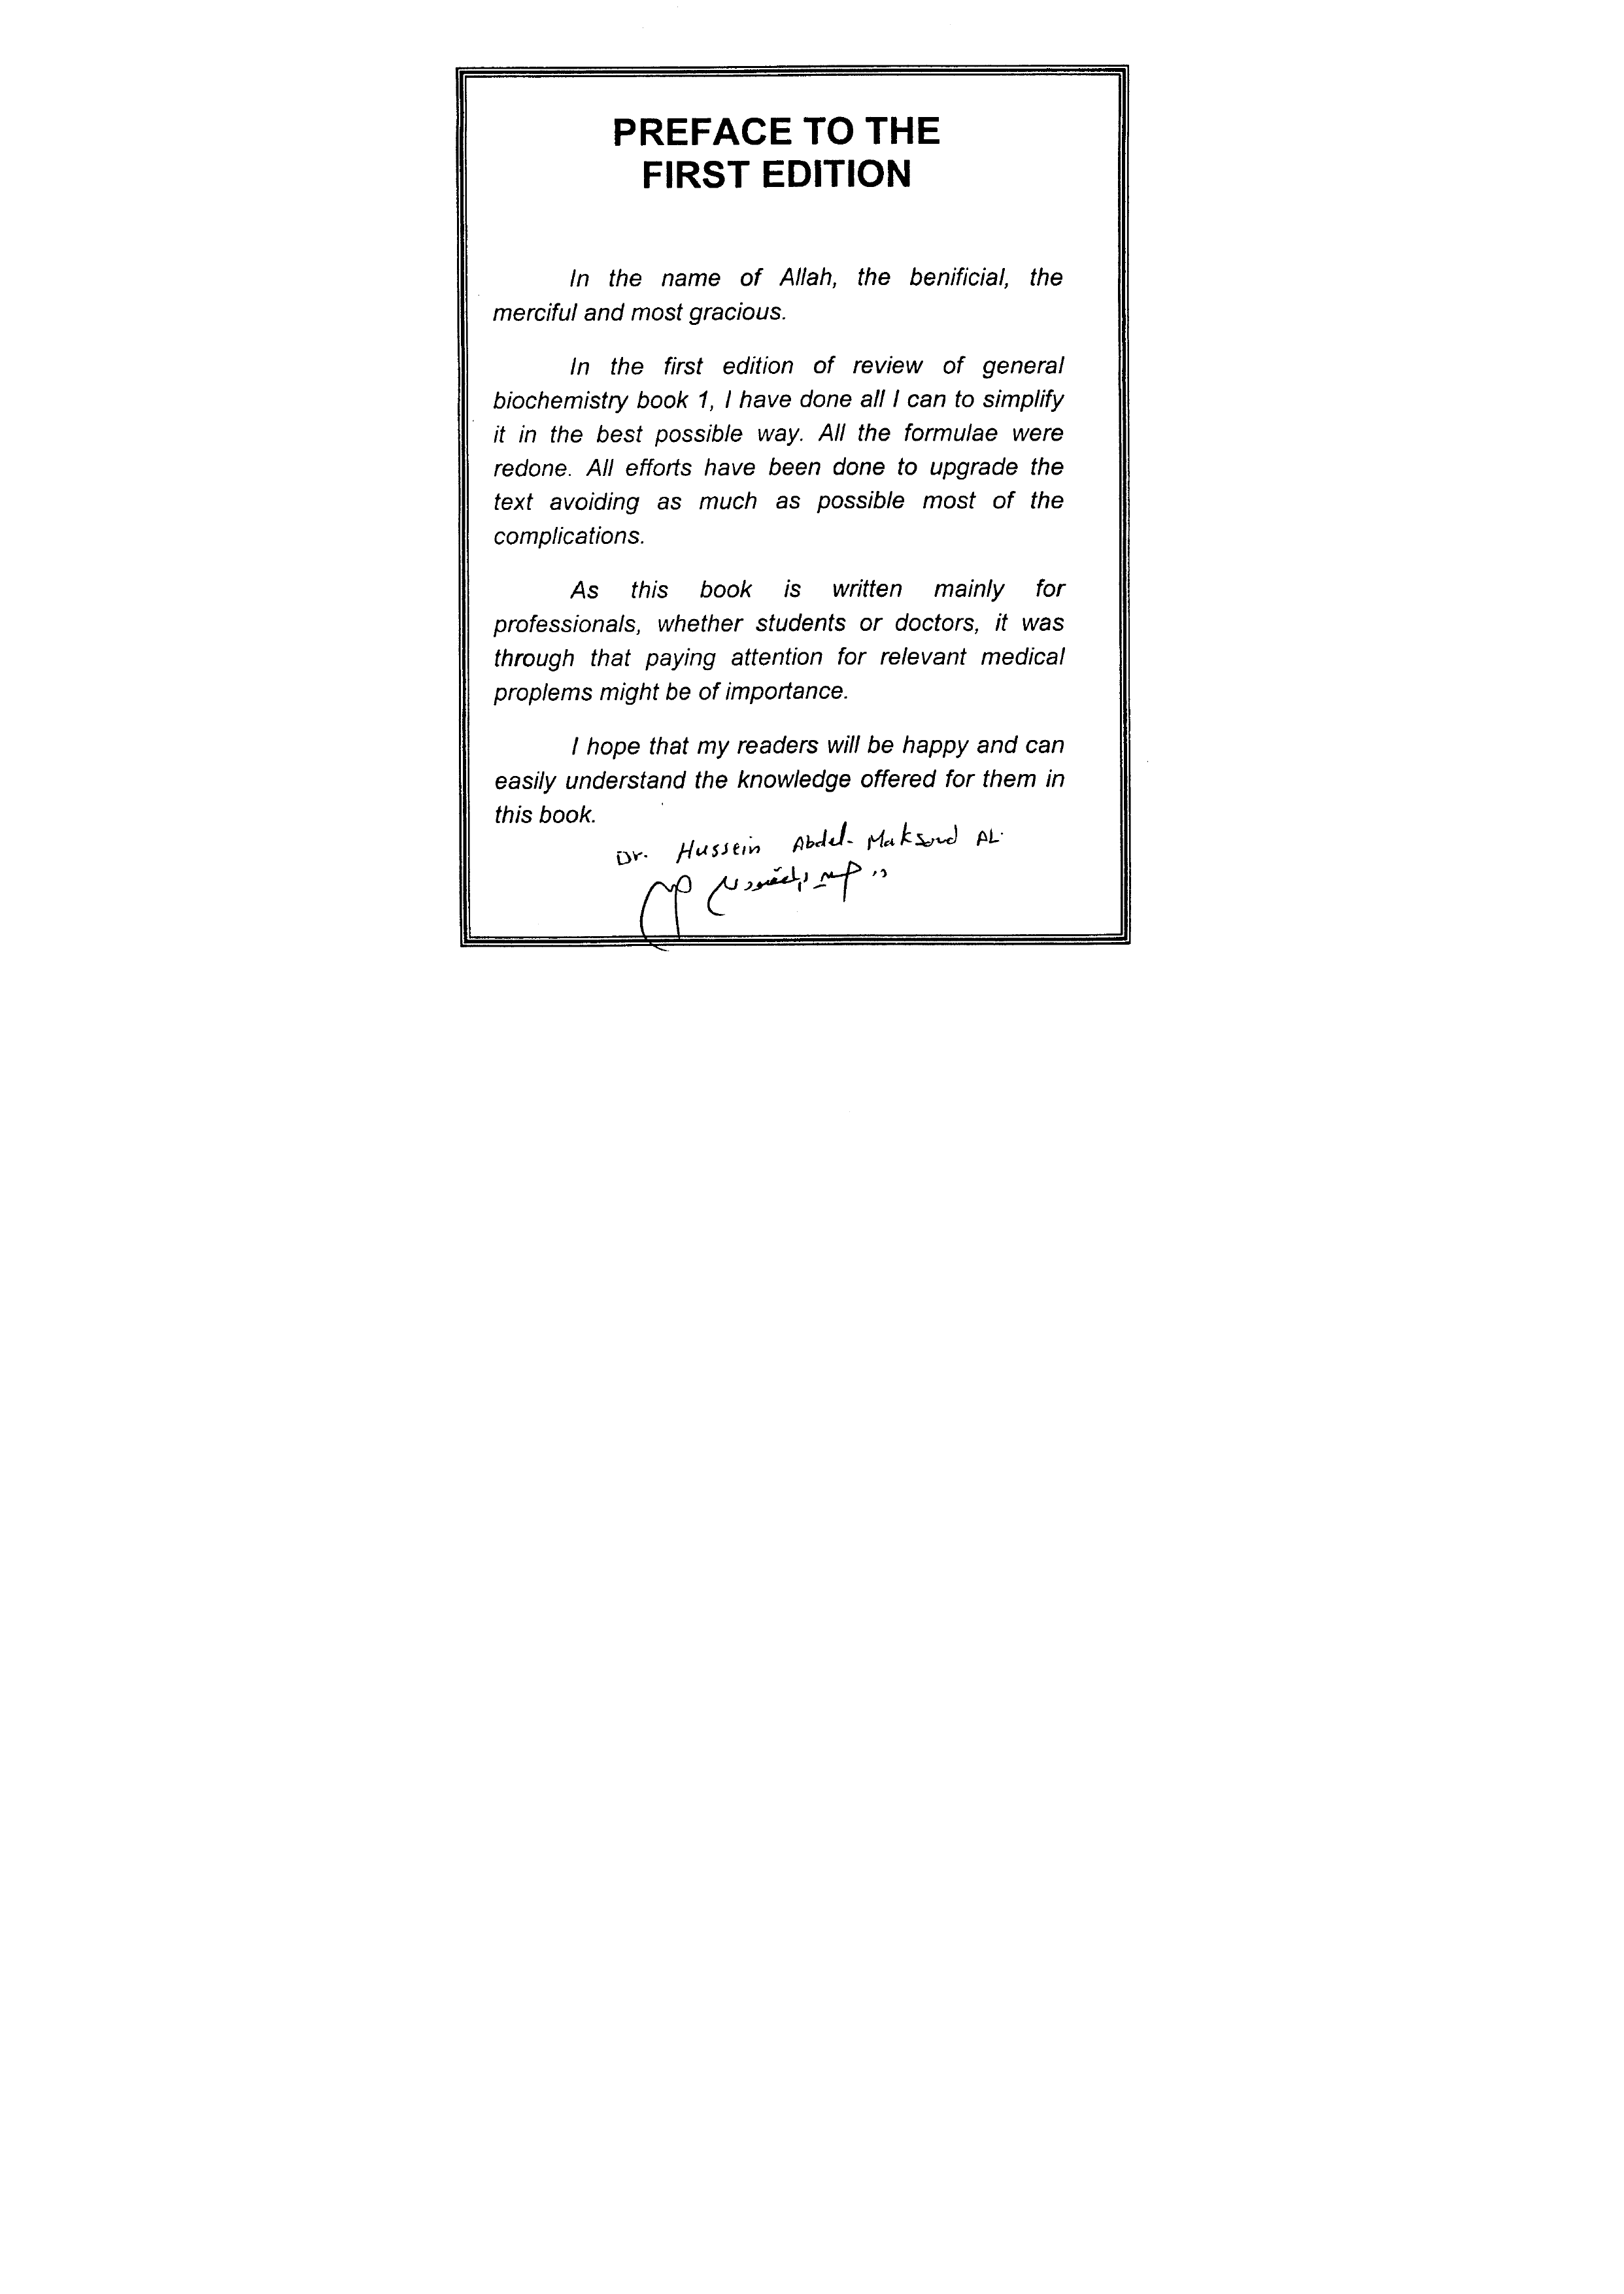 PREFACE TO THE
FIRST EDITION
In the name of Allah, the benificial, the
merciful and most gracious.
In the first edition of review of general
biochemistry book 1, I have done all I can to simplify
it in the best possible way. All the formulae were
redone. All efforts have been done to upgrade the
text avoiding as much as possible most of the
complications.
As this book is written mainly for
professionals, whether students or doctors, it was
through that paying attention for relevant medical
proplems might be of importance.
I hope that my readers will be happy and can
easily understand the knowledge offered for them in
this book.
Dr. Hussein Abdel-Maksoud AL.